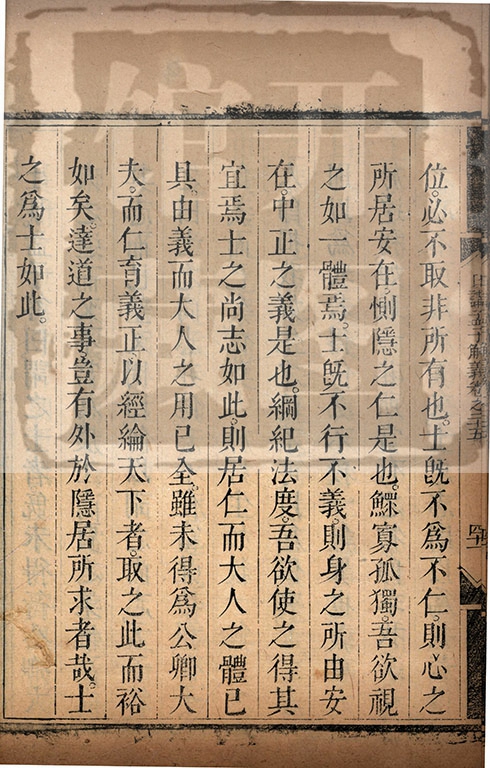 位。必不取非所有也。士旣不爲不仁。則心之
所居安在。惻隱之仁是也。鰥寡孤獨。吾欲視
之如一體焉。士旣不行不義。則身之所由安
在。中正之義是也。綱紀法度。吾欲使之得其
宜焉。士之尚志如此。則居仁而大人之體已
具。由義而大人之用已全。雖未得爲公卿大
夫。而仁育義正。以經綸天下者。取之此而裕
如矣。達道之事。豈有外於隱居所求者哉。士
之爲士如此。
日講孟子解義卷之二十五